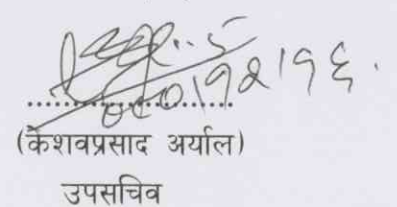 .....................
(केशवप्रसाद अर्याल)
उपसचिव